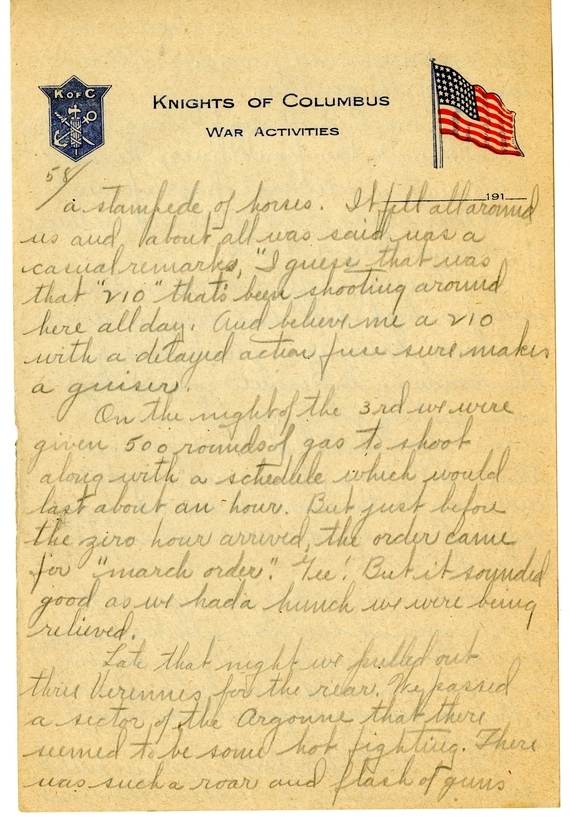 K OF C
KNIGHTS OF COLUMBUS
WAR ACTIVITIES
58/
191
a stampede of horses. It fell all around
us and about all was said was a
casual remarks, "I guess that was
that "210" that's been shooting around
here all day. And believe me a 210
with a delayed action fuse sure makes
a guiser.
On the night of the 3rd we were
given 500 rounds of gas to shoot
along with a schedule which would
last about an hour. But just before
the zero hour arrived, the order came
for "march order". Gee! But it sounded
good as we had a hunch we were being
relieved.
Late that night we pulled out
thru Verennes for the rear. We passed
a sector of the Argonne that there
seemed to be some hot fighting. There
was such a roar and flash of guns